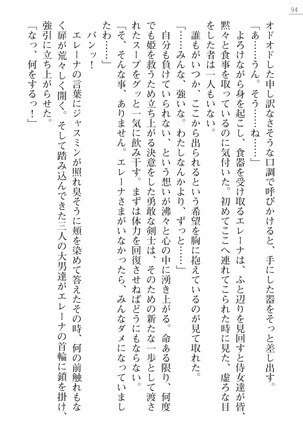 94
オドオドした申し訳なさそうな口調で呼びかけると、手にした器をそっと差し出す。
「あ……うん。そう……ね……」
よろけながら身を起こし、食器を受け取るエレーナは、ふと辺りを見回すと侍女達が皆、
黙々と食事を取っているのに気付いた。初めてここへ連れてこられた時に見た、虚ろな目
をした者は一人もいない。
誰もがいつか、ここから出られるという希望を胸に抱えているのが見て取れた。
「……みんな、強いな。わたしなんかより、ずっと……」
自分も負けていられない、という想いが沸々と心の中に湧き上がる。命ある限り、何度
でも姫を救うため立ち上がる決意をした勇敢な剣士は、そのための新たな一歩として渡さ
れたスープをグッと一気に飲み干す。まずは体力を回復させねばどうにもならない。
「そ、そんな事、ありません。エレーナさまがいなかったら、みんなダメになっていまし
たわ」
バンッ！
エレーナの言葉にジャスミンが照れ臭そうに頬を染めて答えたその時、何の前触れもな
く扉が荒々しく開く。そして踏み込んできた三人の大男達がエレーナの首輪に鎖を掛け、
強引に立ち上がらせた。
「なっ、何をするっ！」